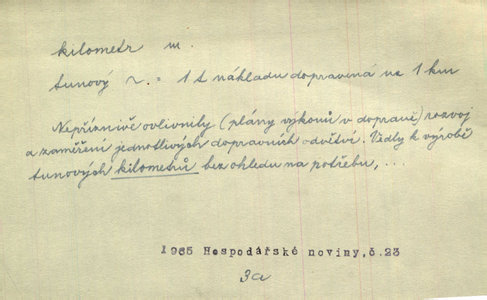 kilometr m.
tunový ~. = 1 t nákladu dopravená na 1 km
Nepříznivě ovlivnily (plány výkonů v dopravě) rozvoj
a zaměření jednotlivých dopravních odvětví. Vedly k výrobě
tunových kilometrů bez ohledu na potřebu, ...
1965 Hospodářské noviny, č.23
3a